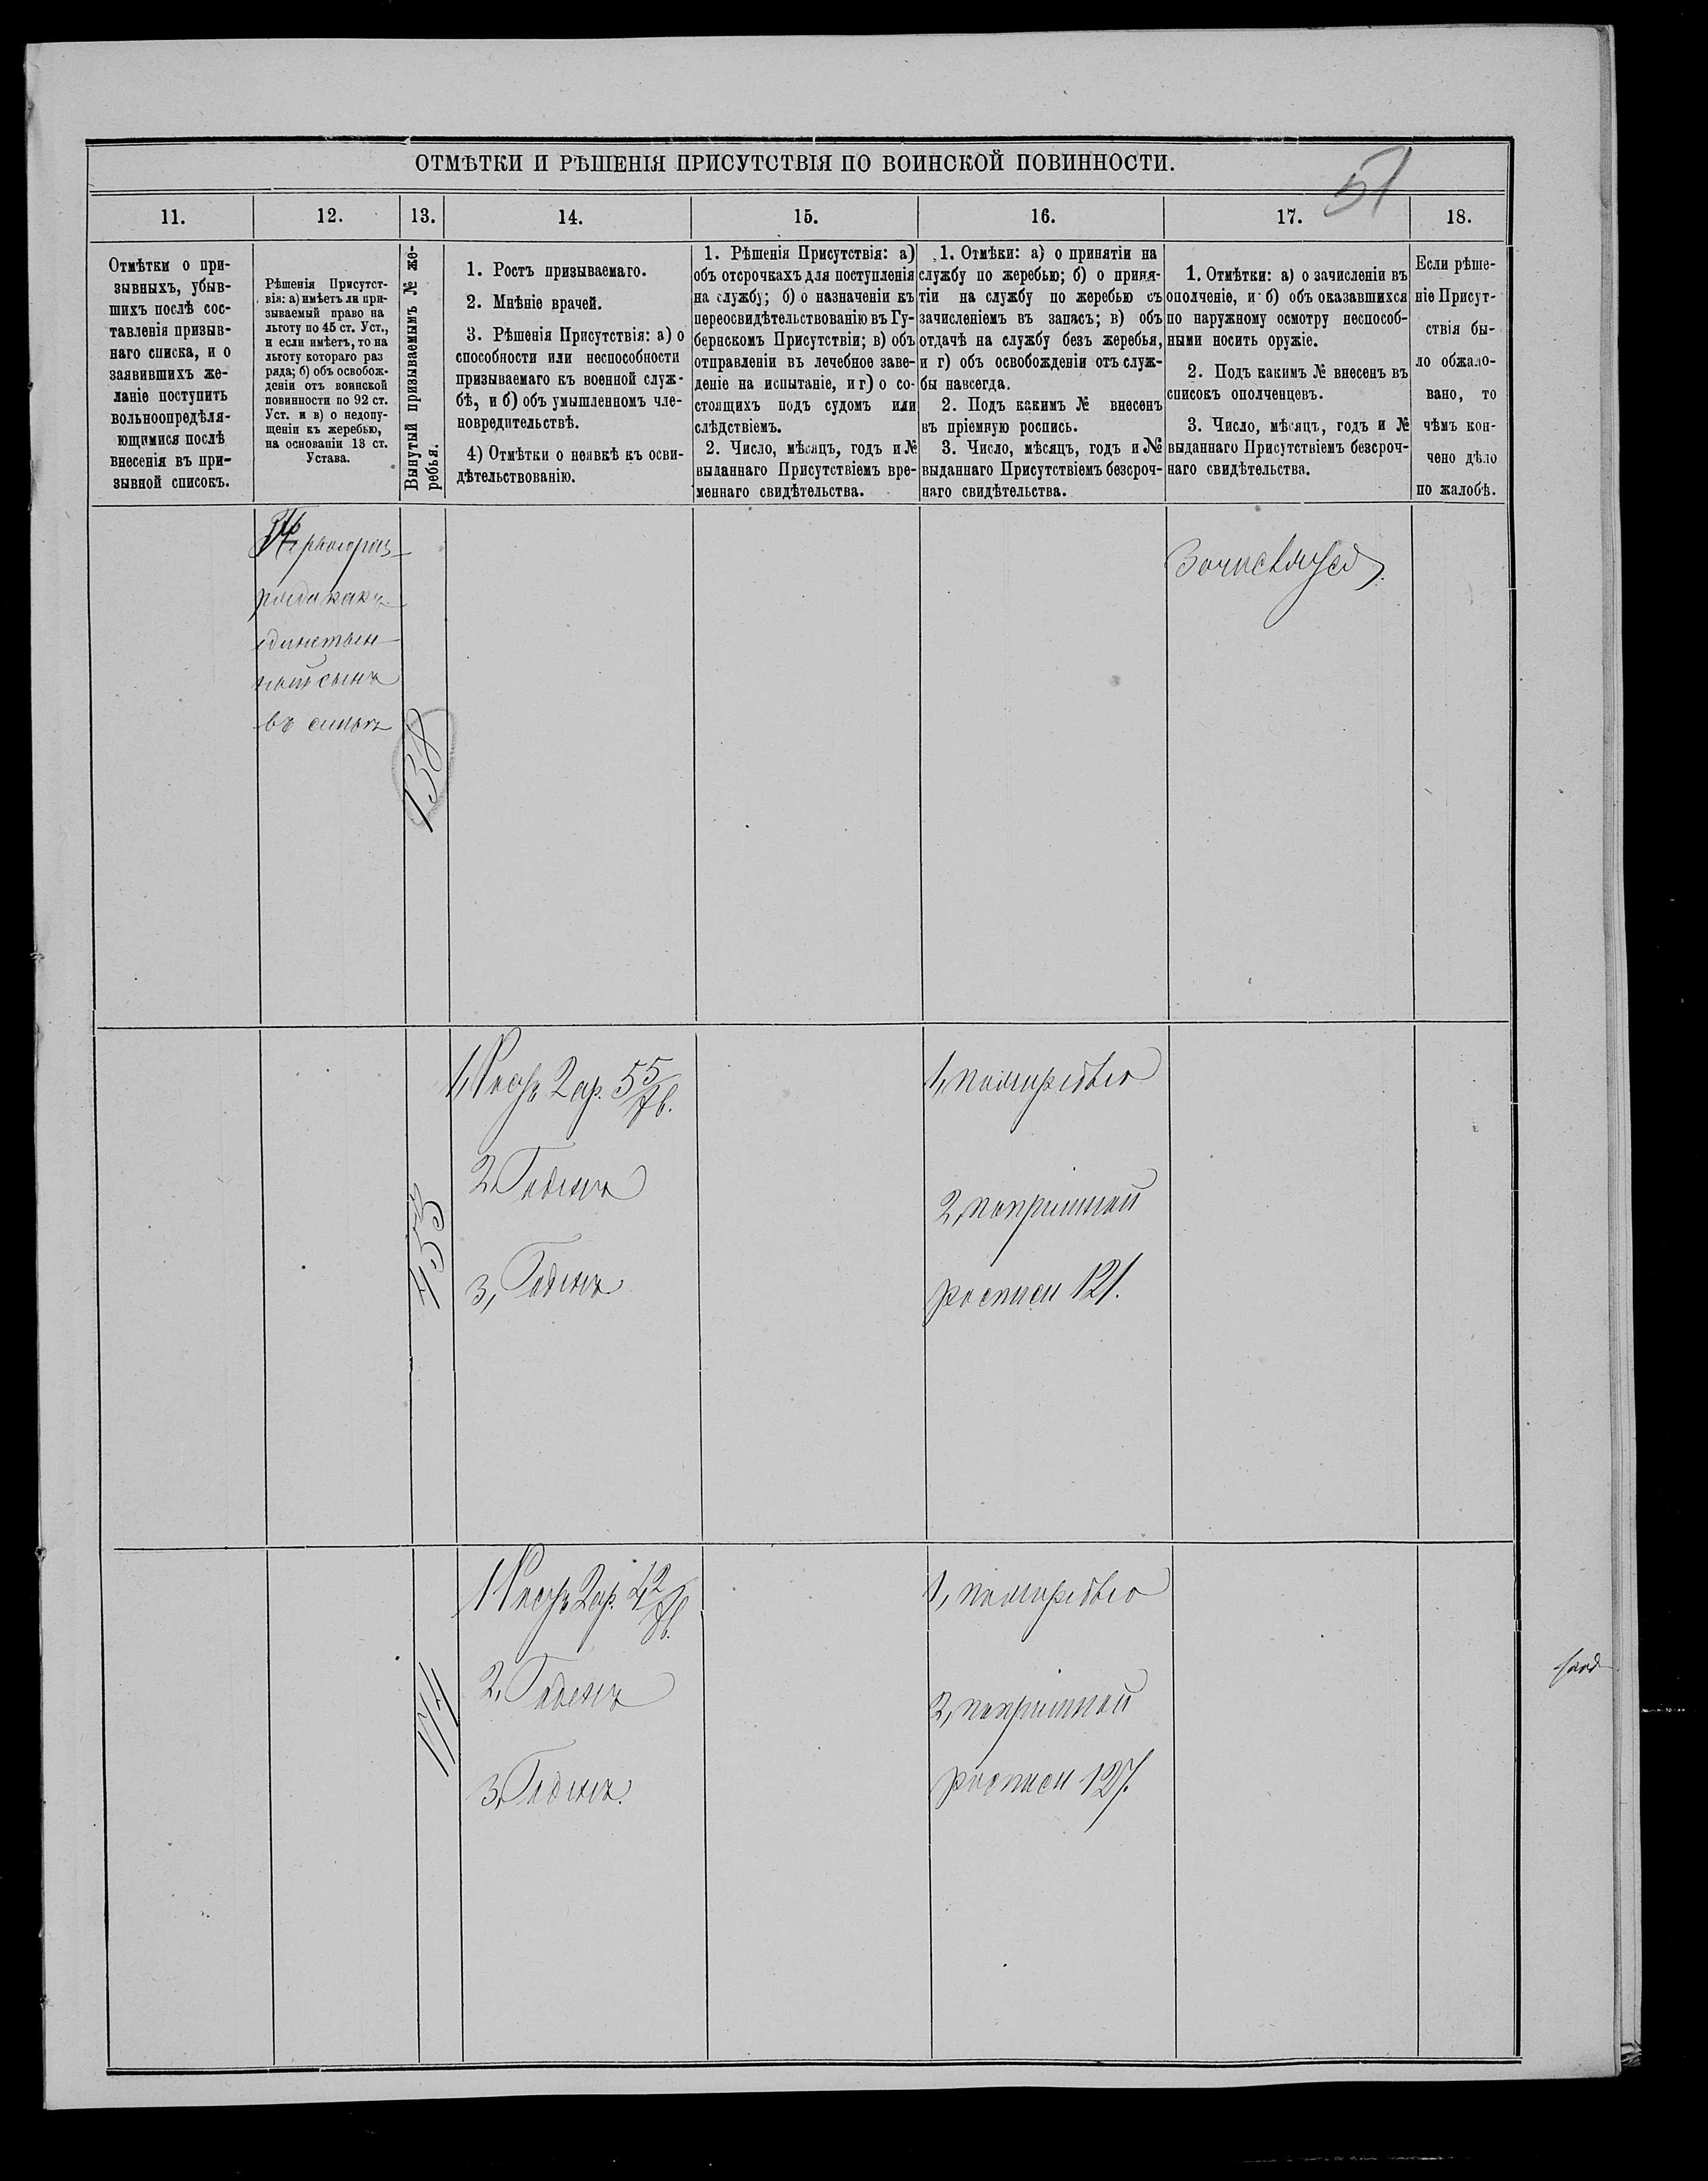 ОТМѢТКИ И РѢШЕНІЯ ПРИСУТСТВІЯ ПО ВОИНСКОЙ ПОВИННОСТИ.
51
11.
12.
13.
14.
15.
16.
17.
18.
Отмѣтки о при-
зывныхъ, убыв-
шихъ послѣ сос-
тавленія призыв-
наго списка, и о
заявившихъ же-
ланіе поступить
вольноопредѣля-
ющимися послѣ
внесенія въ при-
зывной списокъ.
Рѣшенія Присутст-
вія: а) имѣетъ ли при-
зываемый право на
льготу по 45 ст. Уст.,
и если имѣетъ, то на
льготу котораго раз
ряда; б) объ освобож-
деніи отъ воинской
повинности по 92 ст.
Уст. и в) о недопу-
щеніи къ жеребью,
на основаніи 13 ст.
Устава.
Вынутый призываемымъ № же-
ребья.
1. Ростъ призываемаго.
2. Мнѣніе врачей.
3. Рѣшенія Присутствія: а) о
способности или неспособности
призываемаго къ военной служ-
бѣ, и б) объ умышленномъ чле-
новредительствѣ.
4) Отмѣтки о неявкѣ къ осви-
дѣтельствованію.
1. Рѣшенія Присутствія: а)
объ отсрочкахъ для поступленія
на службу; б) о назначеніи къ
переосвидѣтельствованію въ Гу-
бернскомъ Присутствіи; в) объ
отправленіи въ лечебное заве-
деніе на испытаніе, и г) о со-
стоящихъ подъ судомъ или
слѣдствіемъ.
2. Число, мѣсяцъ, годъ и №
выданнаго Присутствіемъ вре-
меннаго свидѣтельства.
1. Отмѣки: а) о принятіи на
службу по жеребью; б) о приня-
тіи на службу по жеребью съ
зачисленіемъ въ запасъ; в) объ
отдачѣ на службу безъ жеребья,
и г) объ освобожденіи отъ служ-
бы навсегда.
2. Подъ какимъ № внесенъ
въ пріемную роспись.
3. Число, мѣсяцъ, годъ и №
выданнаго Присутствіемъ безсроч-
наго свидѣтельства.
1. Отмѣтки: а) о зачисленіи въ
ополченіе, и б) объ оказавшихся
по наружному осмотру неспособ-
ными носить оружіе.
2. Подъ какимъ № внесенъ въ
списокъ ополченцевъ.
3. Число, мѣсяцъ, годъ и №
выданнаго Присутствіемъ безсроч-
наго свидѣтельства.
Если рѣше-
ніе Присут-
ствія бы-
ло обжало-
вано, то
чѣмъ кон-
чено дѣло
по жалобѣ.
Перваго раз-
ряда какъ
единствен-
ный сынъ
въ семьѣ
138
Зачисляется
453
1, Ростъ 2 ар. 5 5/8 в.
2, Годенъ
3, Годенъ
1, по жеребью
2, по пріемной
росписи 121.
174
1, Ростъ 2 ар. 4 2/8 в.
2, Годенъ
3, Годенъ.
1, по жеребью
2, по пріемной
росписи 127.